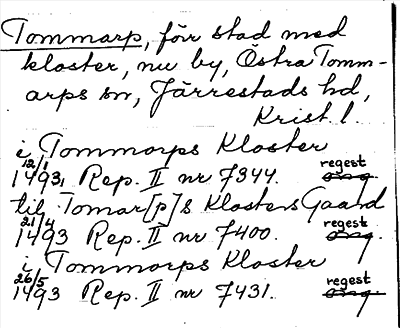 Tommarp, förr stad med
kloster, nu by, Östra Tomm-
arps sn, Järrestads hd,
Krist. l.
i Tommorps Kloster
12/1 1493, Rep. II nr 7344. regest orig.
till Tomar[p]s Klosters Gaard
21/4 1493 Rep. II nr 7400. regest orig.
i Tommorps Kloster
26/5 1493 Rep. II nr 7431. regest orig.